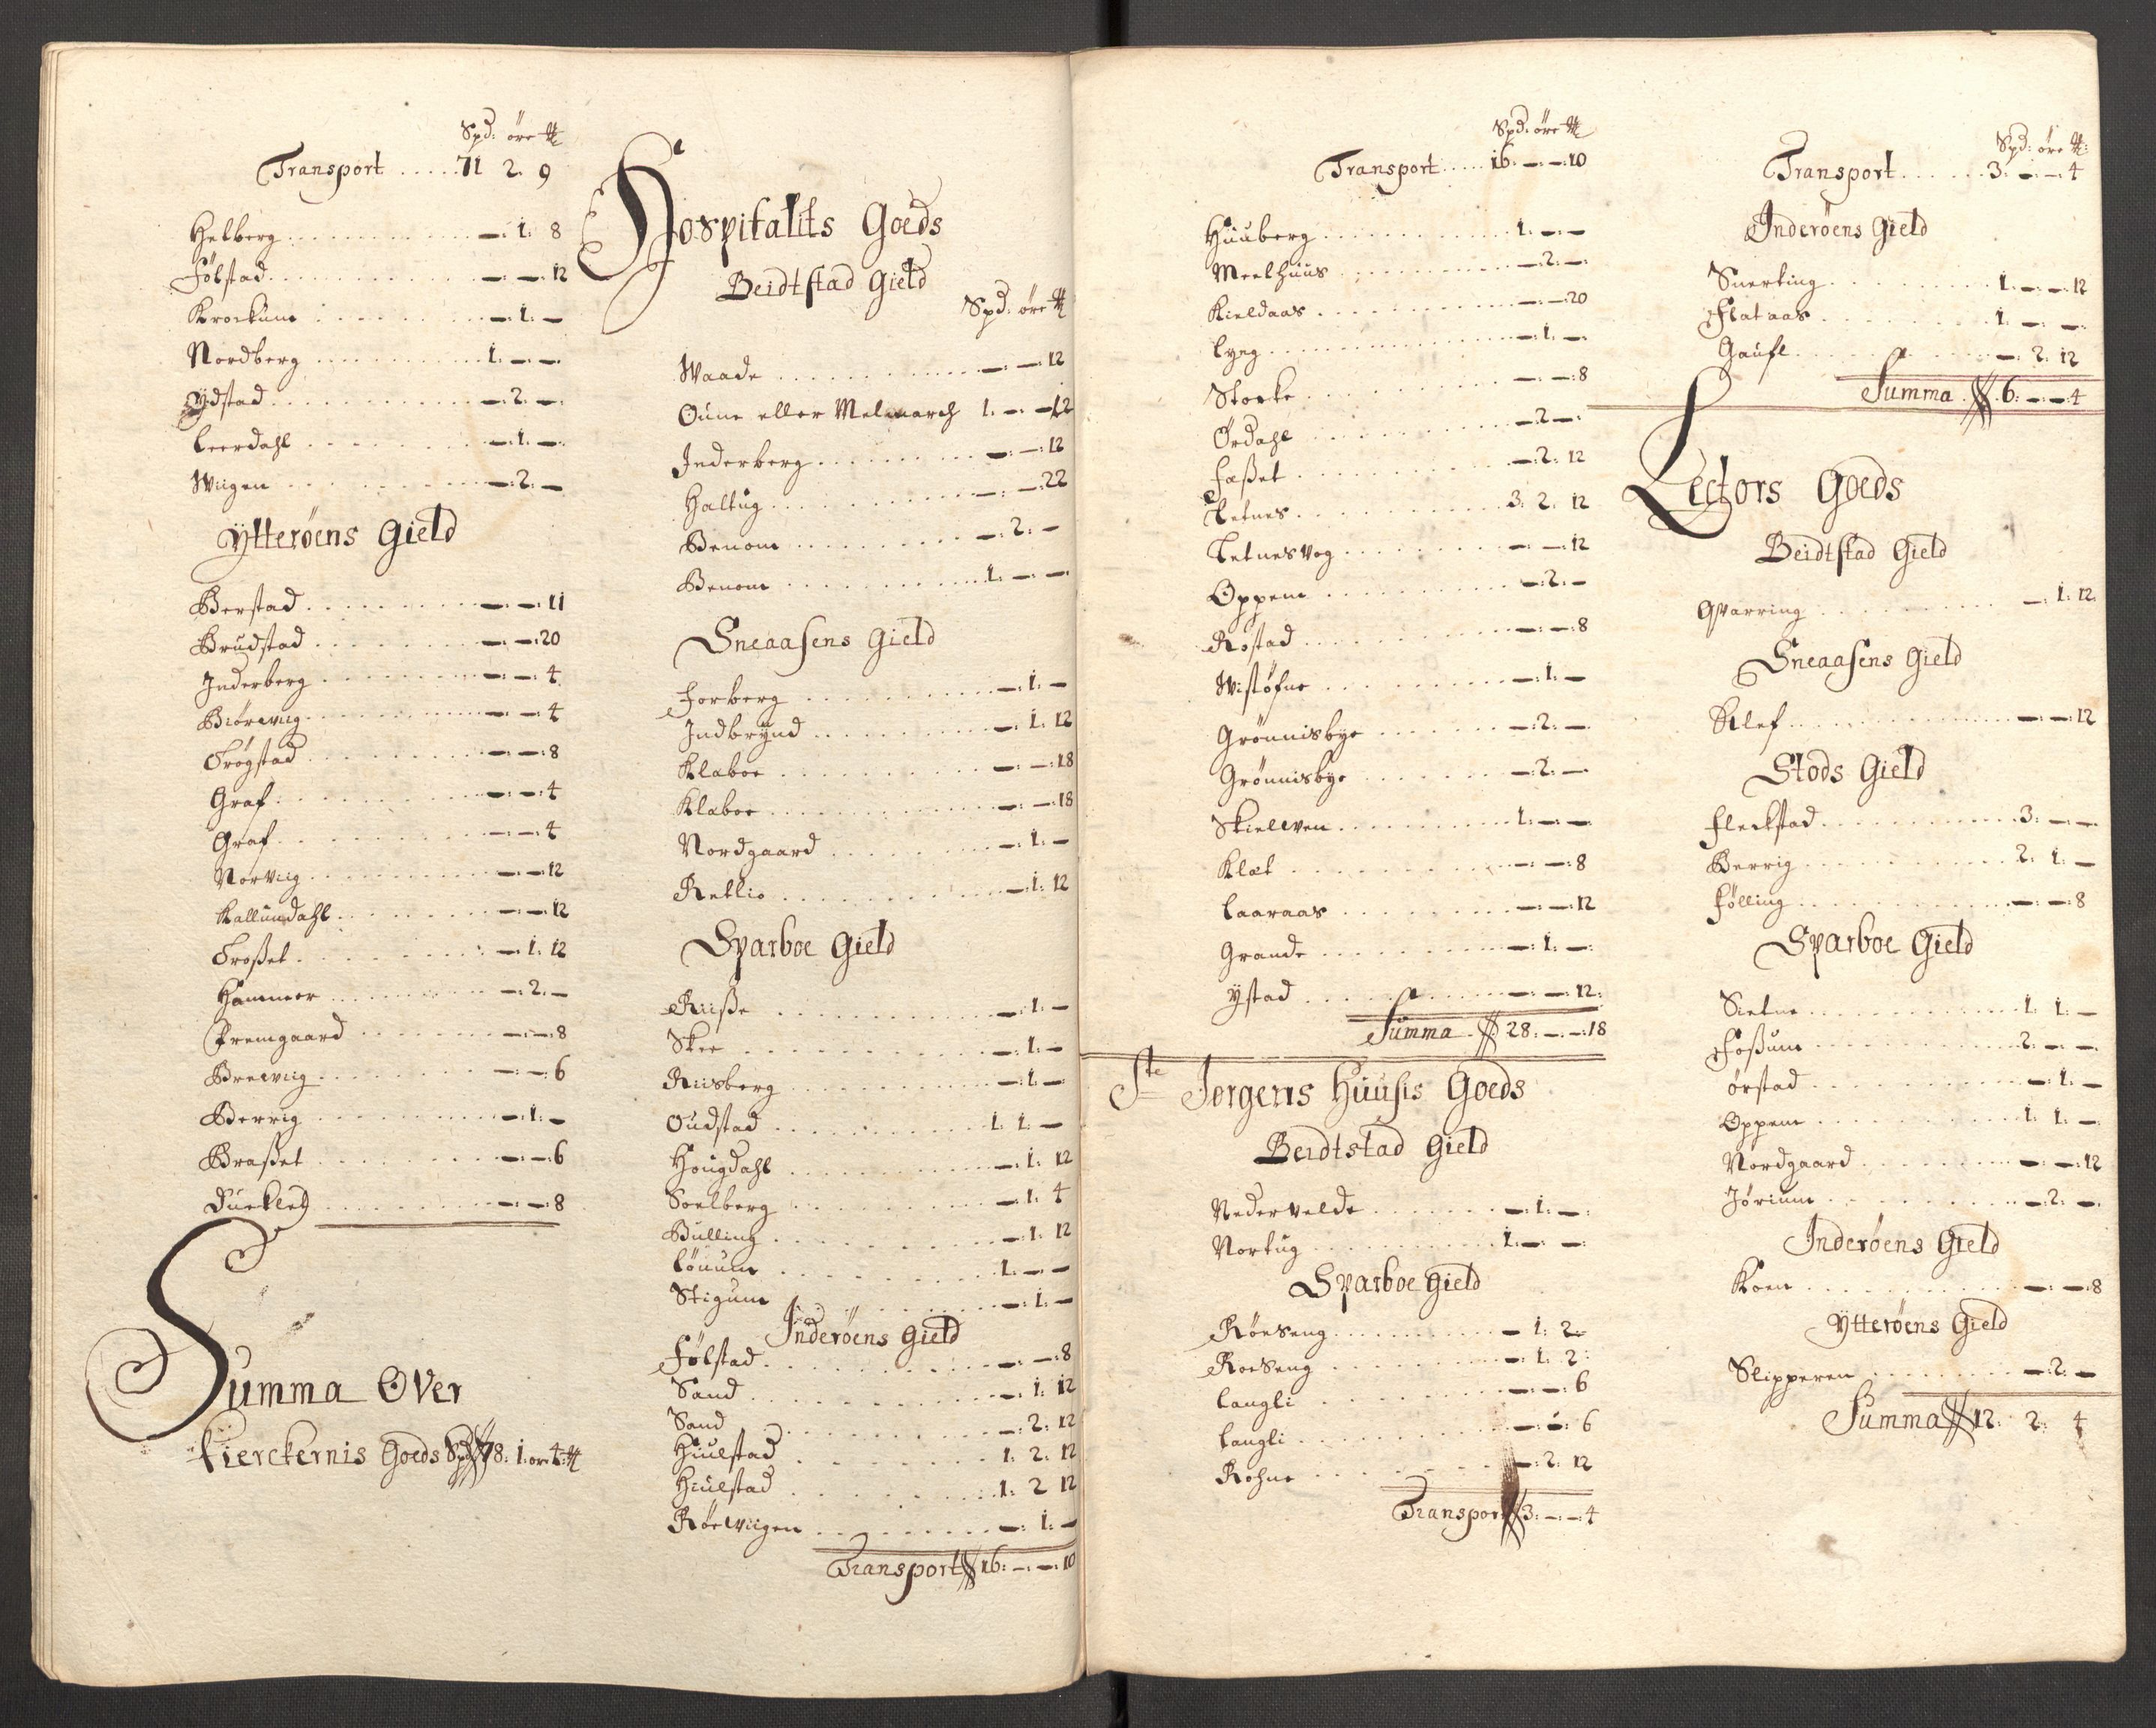 Spd: öre ℔
Transport ..... 71 2. 9
Helberg ..... —. 1. 8
Følstad ..... —. —. 12
Krockum ..... —. 1. —
Nordberg ..... 1. —. —.
Ydstad ..... —. 2. —.
Leerdahl ..... —. 1. —.
Wiigen ..... —. 2. —
Ytterøens Gield
Berstad ..... —. —: 11
Brudstad ..... —. —: 20
Inderberg ..... —. —. 4
Biörwiig ..... —. —: 4
Frögstad ..... —. —: 8
Graf ..... —. —: 4
Graf ..... —. —: 4
Norviig ..... —. —: 12
Kallundahl ..... —. —: 12
Froßet ..... —. 1. 12
Hammer ..... —. 2. —
Premgaard ..... —. —: 8
Brewiig ..... —. —: 6
Berrig ..... —. 1. —
Braßet ..... —. —: 6
Duckled ..... —. —: 8
Summa Over
Kierckernis Goeds Spd 78: 1: ør 4: ℔
Hospitalits Goeds
Beidtstad Gield
Spd: öre ℔
Waade ..... —. —. 12
Oüne eller Melmarch 1. —. —. 12
Inderberg ..... —. —. 12
Haltug ..... —. —. 22
Benom ..... —. 2. —
Benom ..... 1. —. —
Sneaasens Gield
Forberg ..... —. 1. —
Indbrynd ..... —. 1. 12
Klaboe ..... —. —: 18
Klaboe ..... —. —: 18
Nordgaard ..... —. 1. —
Retlio ..... —. 1. 12
Sparboe Gield
Riiße ..... —. 1. —
Skee ..... —. 1. —
Riisberg ..... —. 1. —
Oudstad ..... 1. 1. —
Hougdahl ..... —. 1. 12
Soelberg ..... —. 1. 4
Bulling ..... —. 1. 12
Lönum ..... 1. —. —
Stigum ..... —. 1. —
Inderöens Gield
Følstad ..... —. —. 8
Sand ..... —. 1. 12
Sand ..... —. 2. 12
Hiulstad ..... 1. 2. 12
Hiulstad ..... 1. 2 12
Röewiigen ..... —. 1. —
Transport 16: —. —. 10
Spd: öre ℔
Transport ..... 16. —. —. 10
Huuberg ..... 1. —. —
Meelhuus ..... —. 2. —.
Kieldaas ..... —. —: 20
Lyng ..... —. 1. —.
Storke ..... —. —: 8
Ørdahl ..... —. 2. —.
Faßet ..... —. 2. 12
Letnes ..... 3. 2. 12
Letnesvog ..... —. —: 12
Oppem ..... —. 2. —
Röstad ..... —. —: 8
Wistøfne ..... —. 1. —
Grönnisbye ..... —. 2. —.
Grönnisbye ..... —. 2. —
Skielwen ..... 1. —. —.
Klæt ..... —. —: 8
Laaraas ..... —. —: 12
Grande ..... —. 1. —.
Ystad ..... —. —: 12:
Summa 28: —. —: 18
Ste Jorgens Huusis Goeds
Beidtstad Gield
Nedervelde ..... —. 1. —.
Nortug ..... 1. —. —.
Sparboe Gield
Röeseng ..... —. 1. 2.
Roeseng ..... —. 1. 2
Langli ..... —. —: 6
Langli ..... —. —: 6
Rohne ..... —. 2. 12
Transport 3: —. —: 4
Spd: öre ℔:
Transport ..... 3. —. —. 4
Inderöens Gield
Snerting ..... 1. —. —. 12
Flataas ..... 1. —. —.
Gaufl ..... —. 2. 12
Summa 6: —. —. 4
Lectors Goeds
Beidtstad Gield
Qvarring ..... —. 1. 12
Sneaasens Gield
Klef ..... —. —. 12
Stods Gield
Fleckstad ..... 3. —. —.
Berrig ..... 2. 1. —
Følling ..... —. —. 8
Sparboe Gield
Sietne ..... 1. 1. —
Foßum ..... 2. —. —.
Örstad ..... —. 1. —
Oppem ..... 1. 1. —.
Nordgaard ..... —. —: 12
Jörium ..... —. 2. —.
Inderöens Gield
Koen ..... —. —. 8
Ytteröens Gield
Slipperen ..... —. 2. —
Summa 12. 2. 4